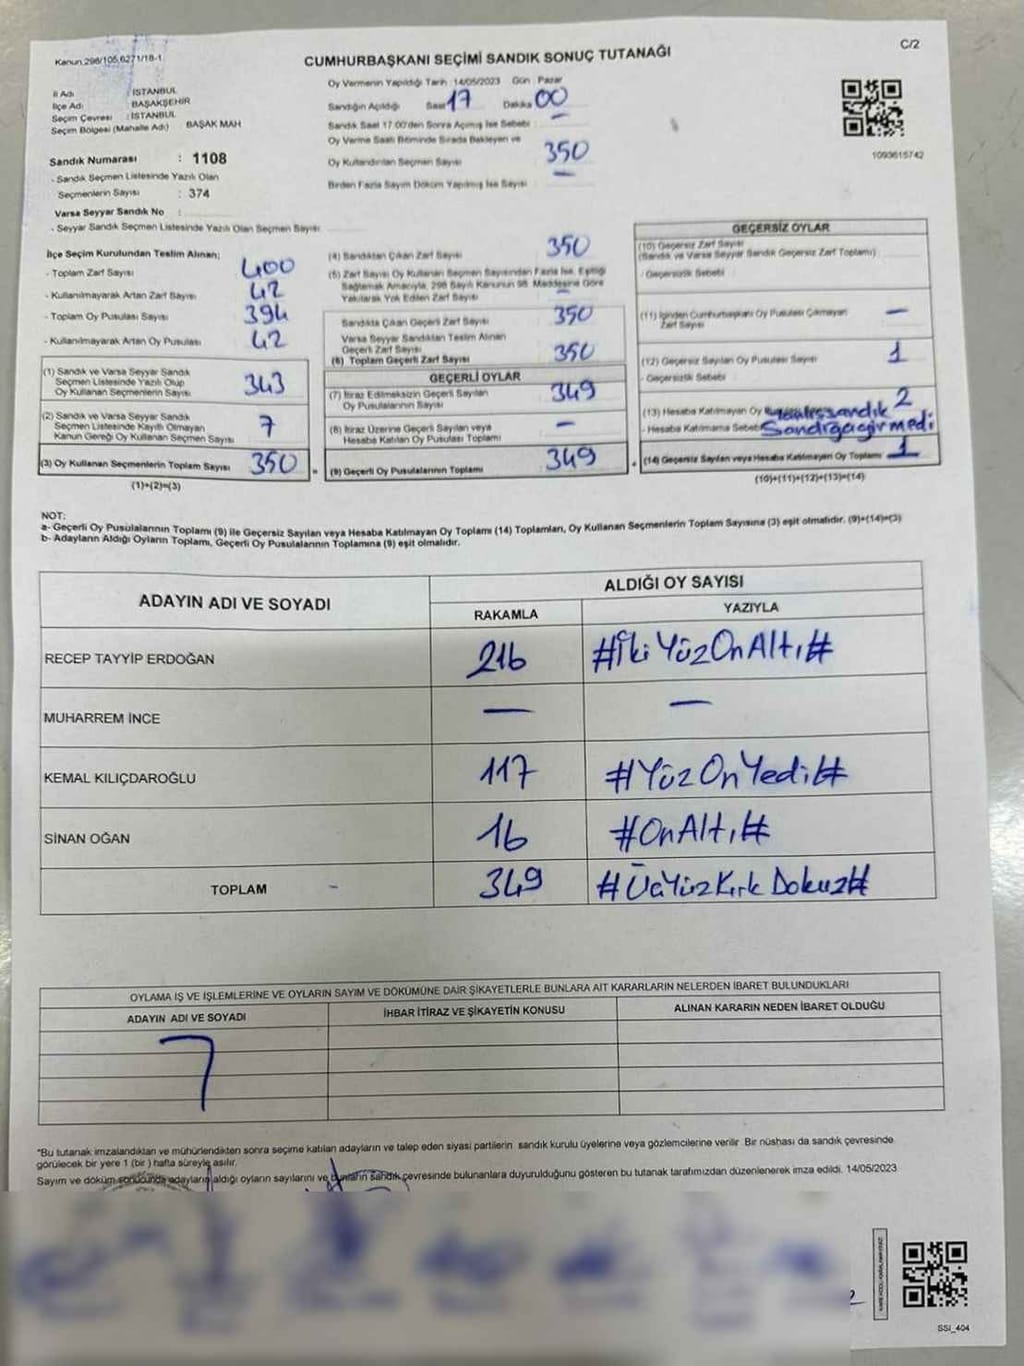 Kanun.298/105,6271/18-1
C/2
CUMHURBAŞKANI SEÇİMİ SANDIK SONUÇ TUTANAĞI
İl Adı : İSTANBUL
İlçe Adı : BAŞAKŞEHİR
Seçim Çevresi : İSTANBUL
Seçim Bölgesi (Mahalle Adı) BAŞAK MAH
Oy Vermenin Yapıldığı Tarih 14/05/2023 Gün Pazar
Sandığın Açıldığı Saat 17 Dakika 00
Sandık Saat 17:00'den Sonra Açılmış İse Sebebi : —
Oy Verme Saati Bitiminde Sırada Bekleyen ve
Oy Kullandırılan Seçmen Sayısı 350
Birden Fazla Sayım Döküm Yapılmış İse Sayısı —
1093615742
Sandık Numarası : 1108
- Sandık Seçmen Listesinde Yazılı Olan
Seçmenlerin Sayısı : 374
Varsa Seyyar Sandık No :
- Seyyar Sandık Seçmen Listesinde Yazılı Olan Seçmen Sayısı
İlçe Seçim Kurulundan Teslim Alınan;
- Toplam Zarf Sayısı 400
- Kullanılmayarak Artan Zarf Sayısı 42
- Toplam Oy Pusulası Sayısı 394
- Kullanılmayarak Artan Oy Pusulası 42
(1) Sandık ve Varsa Seyyar Sandık
Seçmen Listesinde Yazılı Olup
Oy Kullanan Seçmenlerin Sayısı 343
(2) Sandık ve Varsa Seyyar Sandık
Seçmen Listesinde Kayıtlı Olmayan
Kanun Gereği Oy Kullanan Seçmen Sayısı 7
(3) Oy Kullanan Seçmenlerin Toplam Sayısı 350
(1)+(2)=(3)
(4) Sandıktan Çıkan Zarf Sayısı 350
(5) Zarf Sayısı Oy Kullanan Seçmen Sayısından Fazla İse, Eşitliği
Sağlamak Amacıyla, 298 Sayılı Kanunun 98. Maddesine Göre
Yakılarak Yok Edilen Zarf Sayısı —
Sandıkta Çıkan Geçerli Zarf Sayısı 350
Varsa Seyyar Sandıktan Teslim Alınan
Geçerli Zarf Sayısı
(6) Toplam Geçerli Zarf Sayısı 350
GEÇERLİ OYLAR
(7) İtiraz Edilmeksizin Geçerli Sayılan
Oy Pusulalarının Sayısı 349
(8) İtiraz Üzerine Geçerli Sayılan veya
Hesaba Katılan Oy Pusulası Toplamı —
= (9) Geçerli Oy Pusulalarının Toplamı 349
GEÇERSİZ OYLAR
(10) Geçersiz Zarf Sayısı
(Sandık ve Varsa Seyyar Sandık Geçersiz Zarf Toplamı)
- Geçersizlik Sebebi
(11) İçinden Cumhurbaşkanı Oy Pusulası Çıkmayan
Zarf Sayısı —
(12) Geçersiz Sayılan Oy Pusulası Sayısı 1
- Geçersizlik Sebebi
(13) Hesaba Katılmayan Oy 2
- Hesaba Katılmama Sebebi Sandığa girmedi
+ (14) Geçersiz Sayılan veya Hesaba Katılmayan Oy Toplamı 1
(10)+(11)+(12)+(13)=(14)
NOT:
a- Geçerli Oy Pusulalarının Toplamı (9) ile Geçersiz Sayılan veya Hesaba Katılmayan Oy Toplamı (14) Toplamları, Oy Kullanan Seçmenlerin Toplam Sayısına (3) eşit olmalıdır. (9)+(14)=(3)
b- Adayların Aldığı Oyların Toplamı, Geçerli Oy Pusulalarının Toplamına (9) eşit olmalıdır.
ADAYIN ADI VE SOYADI
ALDIĞI OY SAYISI
RAKAMLA YAZIYLA
RECEP TAYYİP ERDOĞAN 216 #İkiYüzOnAltı#
MUHARREM İNCE — —
KEMAL KILIÇDAROĞLU 117 #YüzOnYedi#
SİNAN OĞAN 16 #OnAltı#
TOPLAM - 349 #ÜçYüzKırkDokuz#
OYLAMA İŞ VE İŞLEMLERİNE VE OYLARIN SAYIM VE DÖKÜMÜNE DAİR ŞİKAYETLERLE BUNLARA AİT KARARLARIN NELERDEN İBARET BULUNDUKLARI
ADAYIN ADI VE SOYADI İHBAR İTİRAZ VE ŞİKAYETİN KONUSU ALINAN KARARIN NEDEN İBARET OLDUĞU
"Bu tutanak imzalandıktan ve mühürlendikten sonra seçime katılan adayların ve talep eden siyasi partilerin sandık kurulu üyelerine veya gözlemcilerine verilir. Bir nüshası da sandık çevresinde
görülecek bir yere 1 (bir ) hafta süreyle asılır.
Sayım ve döküm sonucunda adayların aldığı oyların sayılarını ve bunların sandık çevresinde bulunanlara duyurulduğunu gösteren bu tutanak tarafımızdan düzenlenerek imza edildi. 14/05/2023
SSI_404